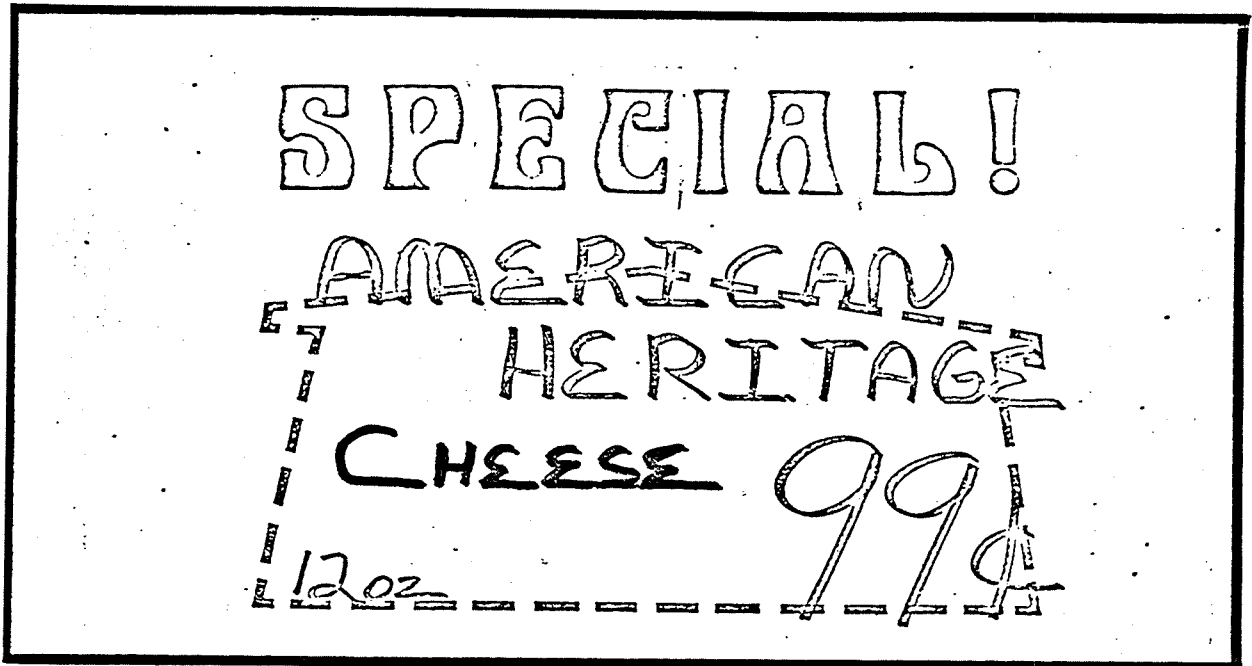 SPECIAL!
AMERICAN
HERITAGE
CHEESE 99¢
12 oz